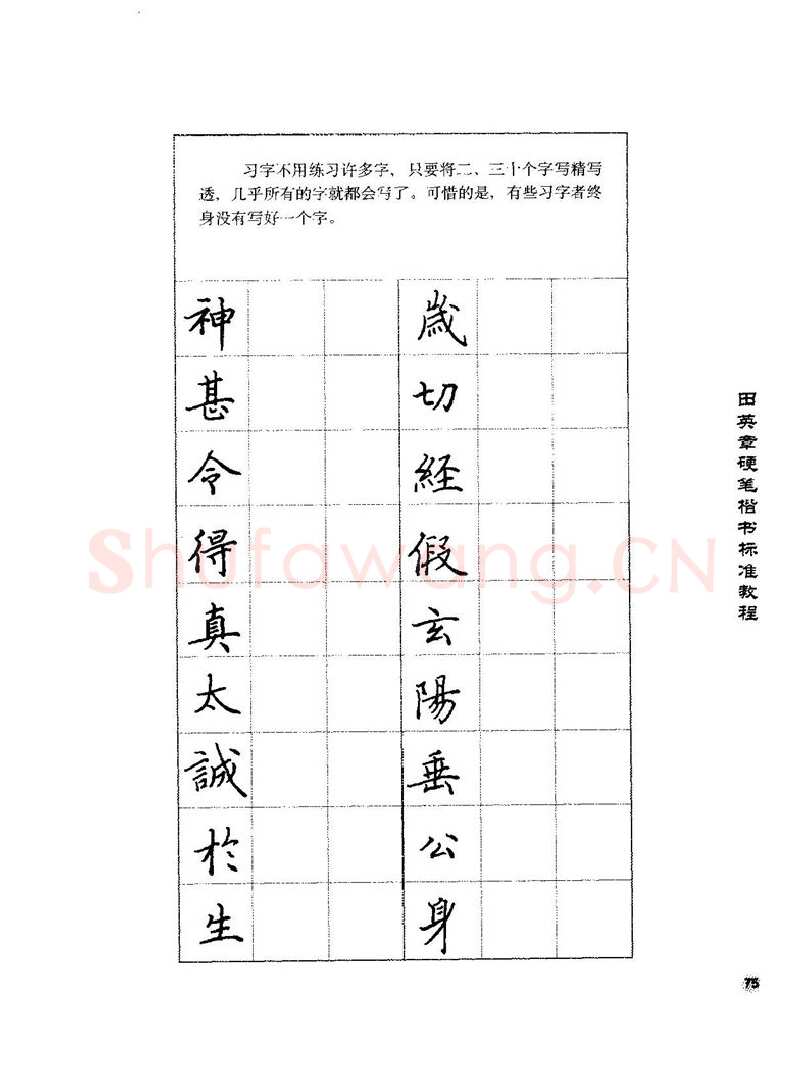 习字不用练习许多字，只要将二、三十个字写精写
透，几乎所有的字就都会写了。可惜的是，有些习字者终
身没有写好一个字。
神 歲
甚 切
令 經
得 假
真 玄
太 陽
誠 垂
於 公
生 身
田英章硬笔楷书标准教程
Shufawang.CN
75